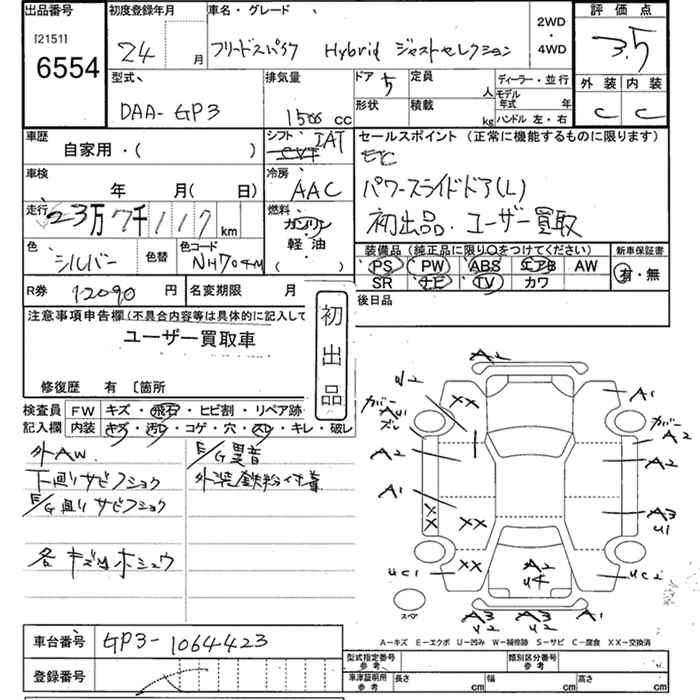 出品番号 初度登録年月 車名・グレード 2WD・4WD 評価点
[2151]
6554 24 月 フリードスパイク Hybrid ジャストセレクション 3.5
型式 排気量 ドア 5 定員 人 ディーラー・並行 外装 内装
DAA-GP3 1500 cc 形状 積載 kg モデル年式 年 C C
ハンドル 左・右
車歴 シフト IAT セールスポイント(正常に機能するものに限ります)
自家用・( ) CVT ETC
車検 冷房 パワースライドドア(L)
年 月( 日) AAC 初出品・ユーザー買取
走行 23万7千117 km 燃料 ガソリン
軽油
( )
色 シルバー 色替 色コード NH704M
装備品(純正品に限り○をつけてください) 新車保証書
PS PW ABS エアB AW 有・無
SR ナビ TV カワ
R券 12090 円 名変期限 月 後日品
注意事項申告欄(不具合内容等は具体的に記入して
ユーザー買取車
初出品
修復歴 有 〔箇所
検査員 FW キズ・飛石・ヒビ割・リペア跡
記入欄 内装 キズ・汚レ・コゲ・穴・スレ・キレ・破レ
外AW E/G異音
下廻りサビフショク 外装鉄粉付着
E/G廻りサビフショク
各キズ凹ホシュウ
A2
XX A1
カバー カバー
A2 A2
A2
A1 A3
U1
X
X XX
XX
UC1 A2 UC2
U4
スペア A2 A3 A1
U2 U2
A-キズ E-エクボ U-凹み W-補修跡 S-サビ C-腐食 XX-交換済
車台番号 GP3-1064423
型式指定番号 参考 類別区分番号 参考
登録番号 車庫証明用 参考 長さ cm 幅 cm 高さ cm